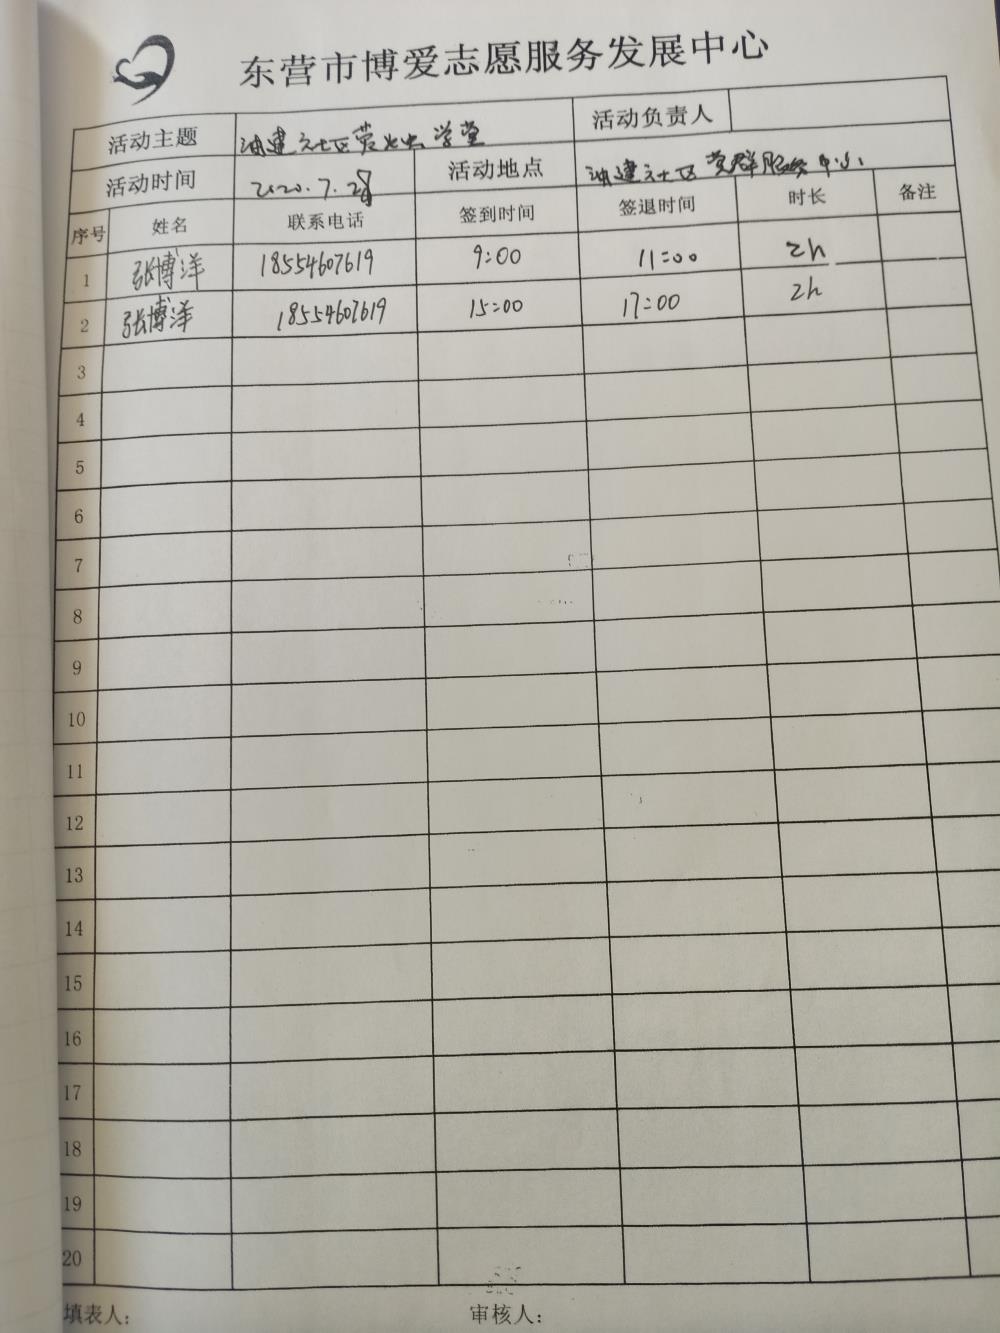 东营市博爱志愿服务发展中心
活动主题 油建社区萤火虫学堂 活动负责人
活动时间 2020.7.28 活动地点 油建社区党群服务中心
序号 姓名 联系电话 签到时间 签退时间 时长 备注
1 张博洋 18554607619 9:00 11:00 2h
2 张博洋 18554607619 15:00 17:00 2h
3
4
5
6
7
8
9
10
11
12
13
14
15
16
17
18
19
20
填表人: 审核人: